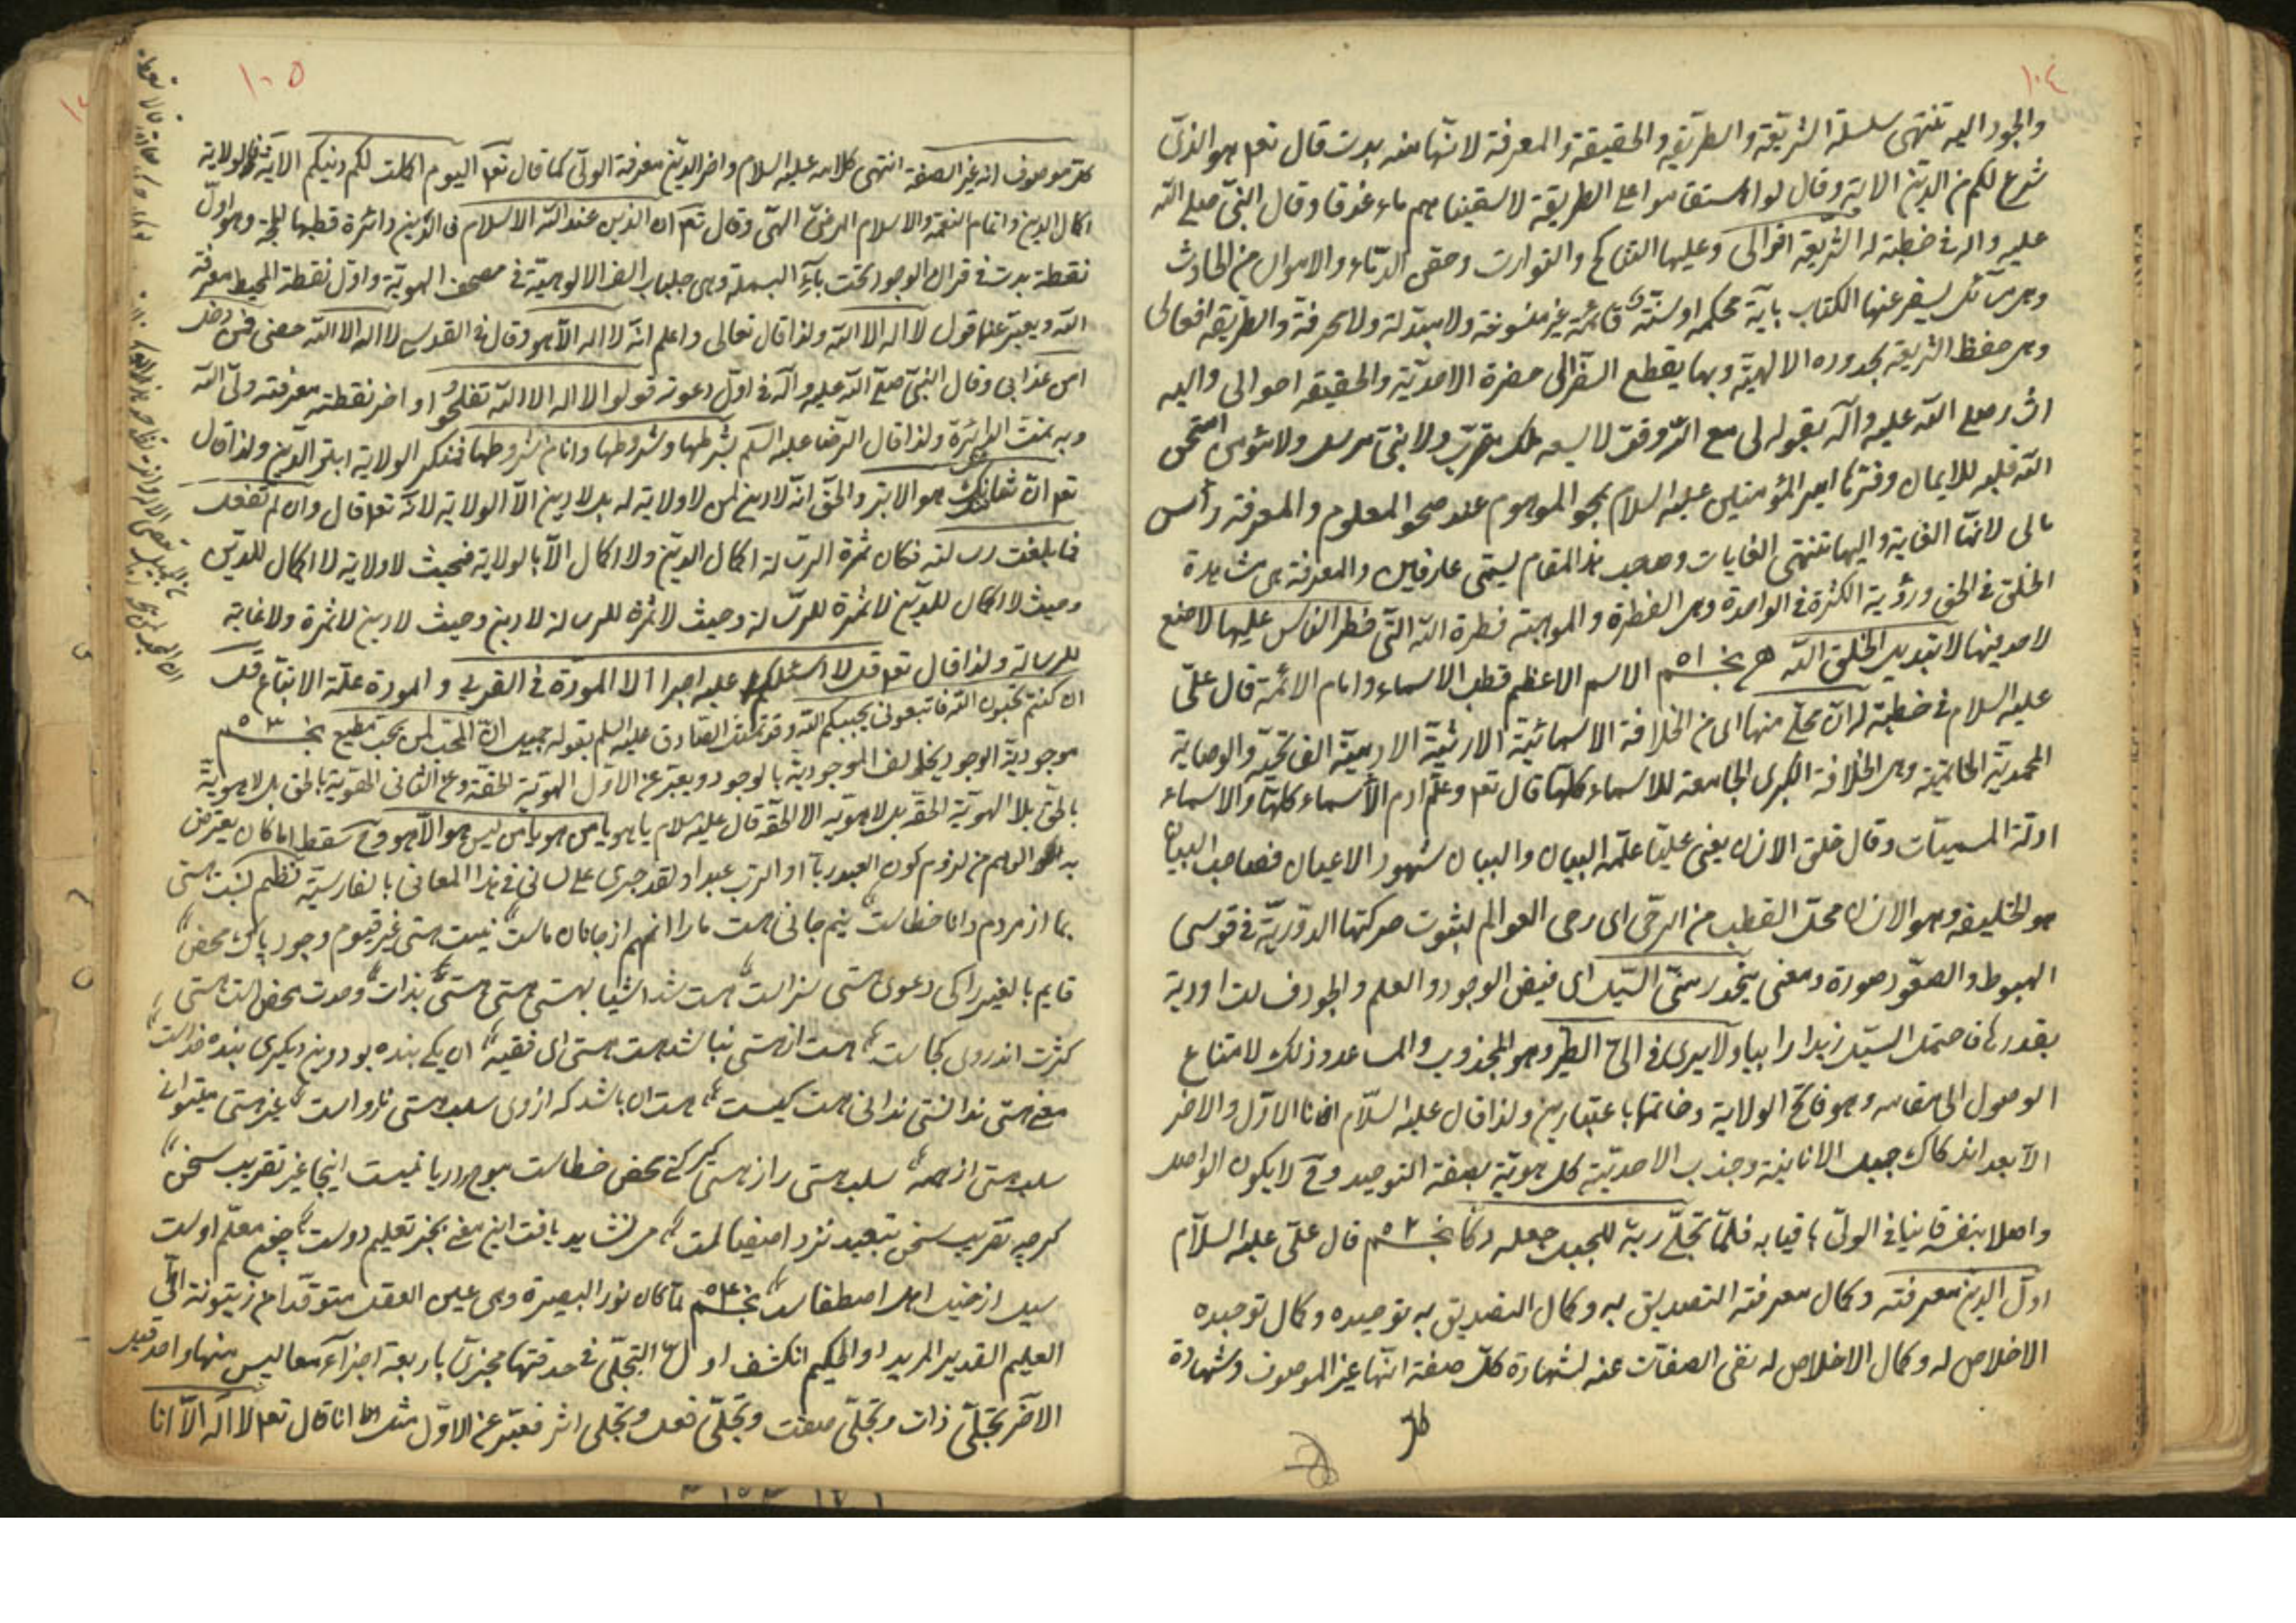 ١٠٤
والجود اليه تنتهى سلسلة الشريعة والطريقة والحقيقة والمعرفة لانها منه بدت قال تعم هو الذى
شرع لكم من الدين الاية وقال لو استقاموا على الطريقة لاسقيناهم ماء غدقا وقال النبى صلى الله
عليه واله فى خطبة له الشريعة اقوالى وعليها التناكح والتوارث وحقن الدماء والاموال من الحادث
وهى ما لم يسفر عنها الكتاب باية محكمة او سنة قائمة غير منسوخة ولا مبدلة ولا محرفة والطريقة افعالى
وهى حفظ الشريعة بحدوده الالهية وبها يقطع السفر الى حضرة الاحدية والحقيقة احوالى واليه
اشار صلى الله عليه واله بقوله لى مع الله وقت لا يسعه ملك مقرب ولا نبى مرسل ولا مؤمن امتحن
الله قلبه للايمان وفسرها امير المؤمنين عليه السلام بمحو الموهوم عند صحو المعلوم والمعرفة رأس
مالى لانها الغاية واليها تنتهى الغايات وصاحب هذا المقام يسمى عارفا والمعرفة هى مشاهدة
الخلق فى الحق ورؤية الكثرة فى الواحدة وهى الفطرة والموهبة فطرة الله التى فطر الناس عليها لا صنع
لاحد فيها لا تبديل لخلق الله نجـم ٥١ الاسم الاعظم قطب الاسماء وامام الائمة قال على
عليه السلام فى خطبة له ان محلى منها اى من الخلافة الاسمائية الارثية
المحمدية الخاتمية وهى الخلافة الكبرى الجامعة للاسماء كلها قال تعم وعلم ادم الأسماء كلها والاسماء
ادلة المسميات وقال خلق الانسان يعنى عليا علمه البيان والبيان شهود الاعيان فصاحب البيان
هو الخليفة وهو الانسان محل القطب من الرحى اى رحى العوالم لثبوت حركتها الدورية فى قوسى
الهبوط والصعود صورة ومعنى ينحدر عنى السيل اى فيض الوجود والعلم والجود فسالت اودية
بقدرها فاحتمل السيل زبدا رابيا ولا يرقى الى الطير وهو المجذوب والمساعد وذلك لامتناع
الوصول الى مقامه وهو فاتح الولاية وخاتمها باعتبارين ولذا قال عليه السلام انا الاول والاخر
الا بعد اندكاك جبل الانانية وجذب الاحدية كل هوية بصفة التوحيد وح لا يكون الواصل
واصلا بنفسه فانيا فى الولى باقيا به فلما تجلى ربه للجبل جعله دكا نجـم ٥٢ قال على عليه السلام
اول الدين معرفته وكمال معرفته التصديق به وكمال التصديق به توحيده وكمال توحيده
الاخلاص له وكمال الاخلاص له نفى الصفات عنه لشهادة كل صفة انها غير الموصوف وشهادة
كل
١٠٥
كل موصوف انه غير الصفة انتهى كلامه عليه السلام واخر الدين معرفة الولى كما قال تعم اليوم اكملت لكم دينكم الاية فالولاية
اكمال الدين واتمام النعمة والاسلام المرضى الهى وقال تعم ان الدين عند الله الاسلام فى الدين دائرة قطبها وهو اول
نقطة بدت فى قران الوجود تحت باء البسملة وهى جلباب الف الالوهية فى مصحف الهوية واول نقطة المحيط معرفة
الله ويعبر عنها قول لا اله الا الله ولذا قال تعالى واعلم انه لا اله الا هو وقال فى القدسى لا اله الا الله حصنى فمن دخل
امن عذابى وقال النبى صلى الله عليه واله فى اول دعوته قولوا لا اله الا الله تفلحوا واخر نقطته معرفة ولى الله
وبه تمت الدائرة ولذا قال الرضا عليه السلم بشرطها وشروطها وانا من شروطها فمنكر الولاية ابتر الدين ولذا قال
تعم ان شانئك هو الابتر والحق انه لا دين لمن لا ولاية له بل لا دين الا الولاية لانه تعم قال وان لم تفعل
فما بلغت رسالته فكان ثمرة الرسالة اكمال الدين ولا اكمال الا بالولاية فحيث لا ولاية لا اكمال للدين
وحيث لا اكمال للدين لا ثمرة للرسالة وحيث لا ثمرة للرسالة لا دين وحيث لا دين لا ثمرة ولا غاية
للرسالة ولذا قال تعم قل لا اسئلكم عليه اجرا الا المودة فى القربى والمودة علة الاتباع قل
ان كنتم تحبون الله فاتبعونى يحببكم الله وقد تمثل الصادق عليه السلم بقوله ان المحب لمن يحب مطيع نجـم ٥٣
موجودية الوجود يخالف الموجودية بالوجود ويعبر عن الاول الهوية الحقة وعن الثانى الهوية بالحق بل لا هوية
بالحق بلا الهوية الحقة بل لا هوية الا الحقة قال عليه السلام يا هو يا من هو يا من ليس هو الا هو وح سقط ما كان يعترض
به الواهم من لزوم كون العبد ربا او الرب عبدا ولقد جرى على لسانى فى هذا المعانى بالفارسية نظم
بما از مردم دانا خطاست نيم جانى هست ما را انهم از جانان ماست نيست هستى غير قيوم وجود پاك محض
قايم بالغير را كى دعوى هستى سزاست هست شد اشيا بهستى هستى هستى بذات وحدت محض است هستى
كثرت اندر وى كجاست هست از هستى نباشد هست هستى اى فقيه ان يكى بنده بود وين ديگرى بنده خداست
معنى هستى ندانستى ندانى هست كيست هست ان باشد كه از وى سلب هستى نارواست غير هستى ميتوان
سلب هستى از همه سلب هستى را ز هستى گر كنى محض خطاست موج دريا نيست اينجا غير تقريب سخن
گرچه تقريب سخن تبعيد نزد اصفياست مى نشايد يافت اين معنى بجز تعليم دوست معلم اوست
سيل از خيل اهل اصطفاست نجـم ٥٤ لما كان نور البصيرة وهى عين العقل متوقدا من زيتونة
العليم القدير المريد او الحكيم انكشف التجلى فى حدقتها مجزى باربعة اجزاء معا ليس منها واحد قبل
الاخر تجلى ذات وتجلى صفت وتجلى فعل وتجلى اثر فعبر عن الاول مثل انا قال تعم لا اله الا انا